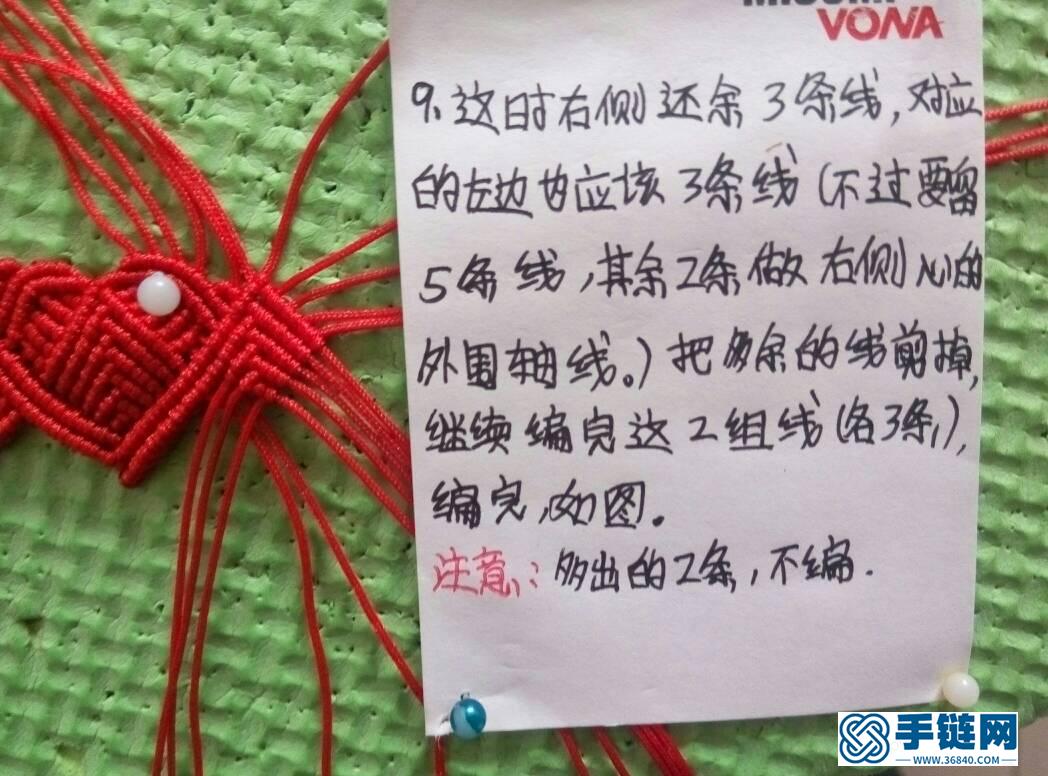 VONA
9、这时右侧还余3条线，对应
的左边也应该3条线（不过要留
5条线，其余2条做右侧心的
外围轴线。）把多余的线剪掉，
继续编完这2组线（各3条），
编完，如图。
注意：多出的2条，不编.
手链网
WWW.36840.COM